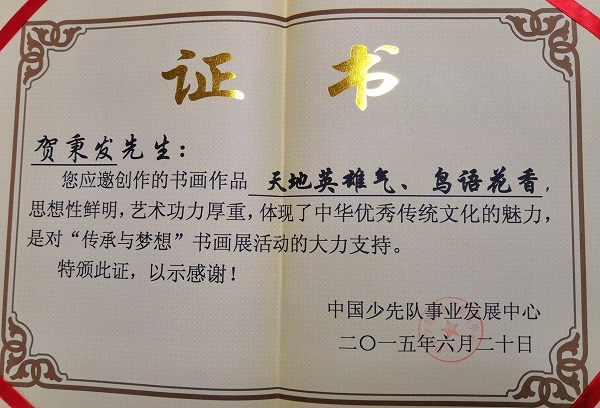 证 书
贺秉发先生：
您应邀创作的书画作品 天地英雄气、鸟语花香，
思想性鲜明，艺术功力厚重，体现了中华优秀传统文化的魅力，
是对“传承与梦想”书画展活动的大力支持。
特颁此证，以示感谢！
中国少先队事业发展中心
二〇一五年六月二十日